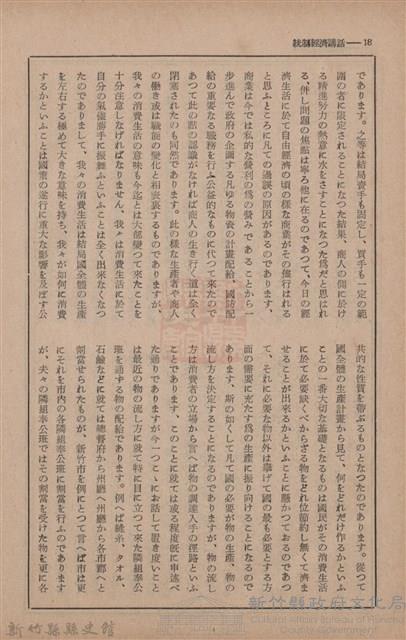 統制經濟講話——18
であります。之等は結局賣手も固定し、買手も一定の範
圍の者に限定されることになつた結果、商人の側に於け
る精進努力の熱意に水をさすことになつた爲だと思はれ
る、併し問題の焦點は寧ろ他に在るのであつて、今日の經
濟生活に於て自由經濟の頃の樣な商業がその儘行はれる
と思ふところに凡ての過誤の原因があるのであります、
商業は今では私的な營利の爲の營みであることから一
步進んで政府の企畫する凡ゆる物資の計畫配給、國防配
給の重要なる職務を行ふ公益的なものに代つて來たので
あつて此の點の認識がなければ商人の生き行く道は全く
閉塞されたのも同然であります。此の樣な生產者や商人
の働き或は職能の變化と相表裏するものでありますが、
我々の消費生活の意味も今迄とは大部變つて來たことを
十分注意しなければなりません、我々は消費生活に於て
自分の氣儘勝手に振舞ふといふことは全く出來なくなつ
たのでありまして、我々の消費生活は結局國全體の生產
を左右する極めて大きな意味を持ち、我々が如何に消費
するかといふことは國策の遂行に重大な影響を及ぼす公
共的な性質を帶ぶるものとなつたのであります。從つて
國全體の生產計畫から見て、何をどれだけ作るかといふ
ことの一番大切な基礎となるものは國民がその消費生活
に於て必要缺くべからざる物をどれ位節約し無くて濟ま
せることが出來るかといふことに懸かつておるのであつ
て、それに必要な物以外は擧げて國の最も必要とする方
面の需要に充たす爲の生產に振り向けることになるので
あります、斯の如くして凡て國の必要が物の生產、物の
流し方を決定することになるのでありますが、物の流し
方は消費者の立場から言へば物の調達入手の徑路といふ
ことであります、このことに就ては或る程度旣に申述べ
た通りでありますが今一つこゝにお話して置き度いこと
は最近の物の流し方に就て特に目に立つて來た隣組奉公
班を通ずる物の配給であります。例へば綿糸、タオル、
石鹼などに就ては總督府から州廳へ州廳から各市郡へと
割當せられたものが、新竹市を例にとつて言へば市は更
にそれを市內の各隣組奉公班に割當を行ふのであります
が、夫々の隣組奉公班ではその割當を受けた物を更に各
新竹縣政府文化局
Cultural Affairs Bureau
新竹縣縣史館